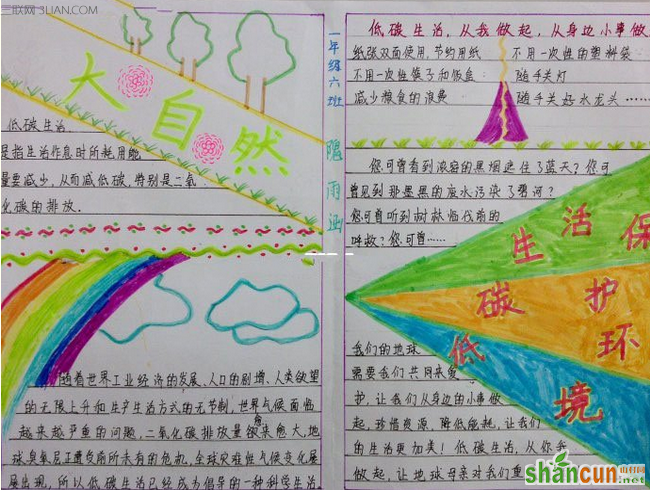 三联网 3LIAN.COM
大自然
低碳生活.
是指生活作息时所耗用能
量要减少,从而减低碳,特别是二氧
化碳的排放.
随着世界工业经济的发展、人口的剧增、人类欲望
的无限上升和生产生活方式的无节制,世界气候面临
越来越严重的问题,二氧化碳排放量愈来愈大,地
球臭氧层正遭受前所未有的危机,全球灾难性气候变化屡
屡出现,所以低碳生活已经成为倡导的一种科学生活.
一年级六班
雨涵
低碳生活,从我做起,从身边小事做
纸张双面使用,节约用纸 不用一次性的塑料袋
不用一次性筷子和饭盒 随手关灯
减少粮食的浪费 随手关好水龙头……
您可曾看到浓密的黑烟遮住了蓝天?您可
曾见到那墨黑的废水污染了碧河?
您可曾听到树林临伐前的
呼救?您可曾……
生活保
碳护
低环
境
我们的地球
需要我们共同来爱
护,让我们从身边的小事做
起,珍惜资源,降低能耗,让我们
的生活更加美!低碳生活,从你我
做起,让地球母亲对我们重
shancun